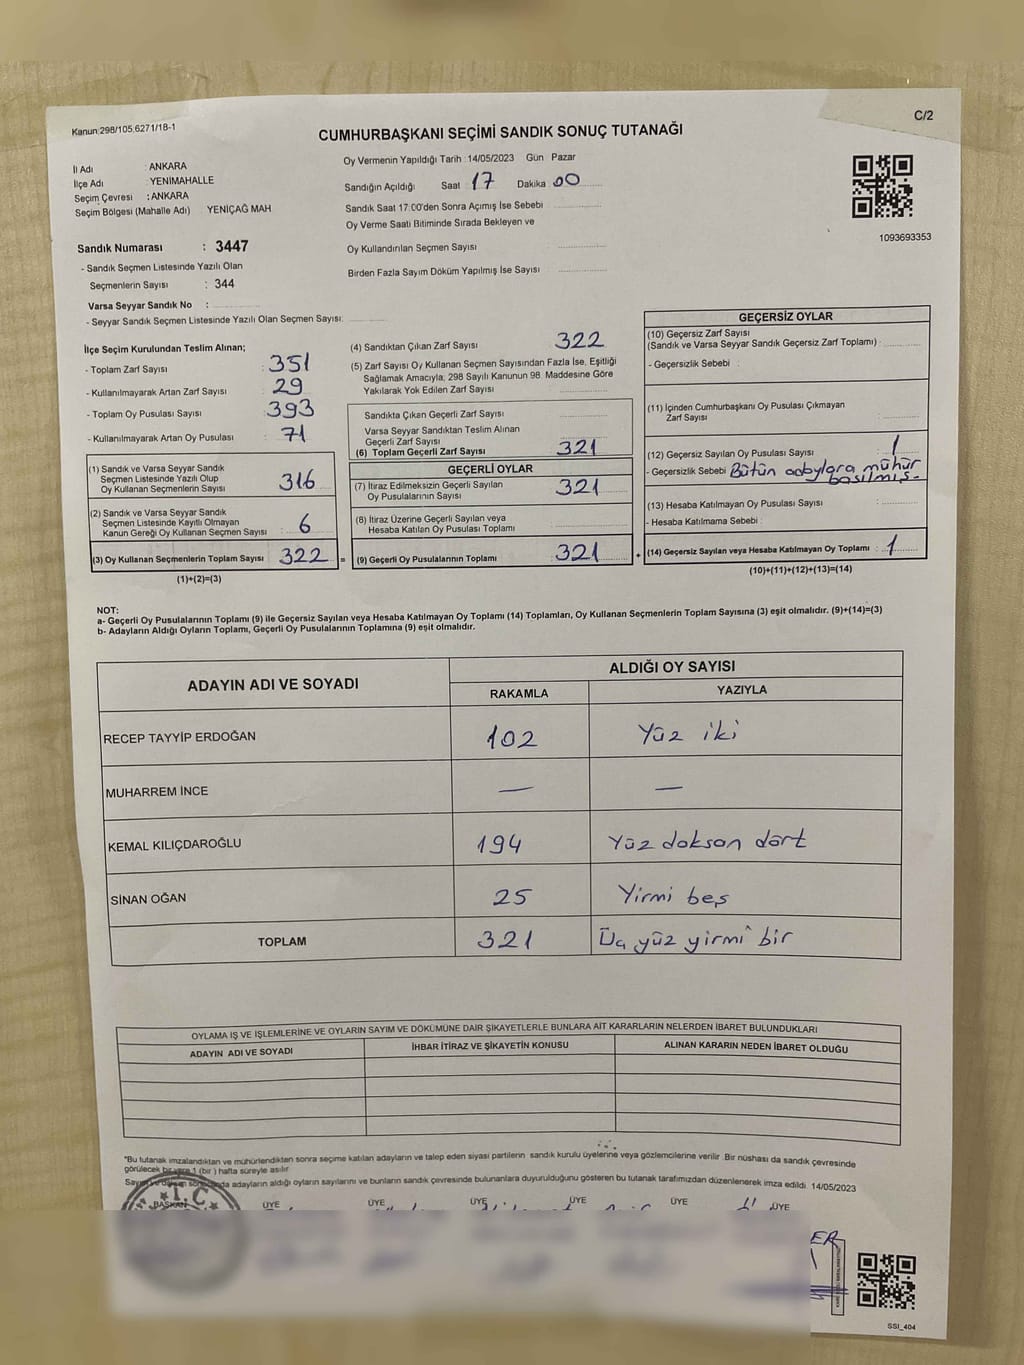 Kanun:298/105,6271/18-1
C/2
CUMHURBAŞKANI SEÇİMİ SANDIK SONUÇ TUTANAĞI
İl Adı : ANKARA
İlçe Adı : YENİMAHALLE
Seçim Çevresi : ANKARA
Seçim Bölgesi (Mahalle Adı) YENİÇAĞ MAH
Sandık Numarası : 3447
- Sandık Seçmen Listesinde Yazılı Olan
Seçmenlerin Sayısı : 344
Varsa Seyyar Sandık No :
- Seyyar Sandık Seçmen Listesinde Yazılı Olan Seçmen Sayısı:
Oy Vermenin Yapıldığı Tarih :14/05/2023 Gün Pazar
Sandığın Açıldığı Saat 17 Dakika 00
Sandık Saat 17:00'den Sonra Açımış İse Sebebi
Oy Verme Saati Bitiminde Sırada Bekleyen ve
Oy Kullandırılan Seçmen Sayısı
Birden Fazla Sayım Döküm Yapılmış İse Sayısı
1093693353
İlçe Seçim Kurulundan Teslim Alınan;
- Toplam Zarf Sayısı : 351
- Kullanılmayarak Artan Zarf Sayısı : 29
- Toplam Oy Pusulası Sayısı : 393
- Kullanılmayarak Artan Oy Pusulası : 71
(1) Sandık ve Varsa Seyyar Sandık
Seçmen Listesinde Yazılı Olup
Oy Kullanan Seçmenlerin Sayısı : 316
(2) Sandık ve Varsa Seyyar Sandık
Seçmen Listesinde Kayıtlı Olmayan
Kanun Gereği Oy Kullanan Seçmen Sayısı : 6
(3) Oy Kullanan Seçmenlerin Toplam Sayısı : 322 =
(1)+(2)=(3)
(4) Sandıktan Çıkan Zarf Sayısı 322
(5) Zarf Sayısı Oy Kullanan Seçmen Sayısından Fazla İse, Eşitliği
Sağlamak Amacıyla; 298 Sayılı Kanunun 98. Maddesine Göre
Yakılarak Yok Edilen Zarf Sayısı
Sandıkta Çıkan Geçerli Zarf Sayısı
Varsa Seyyar Sandıktan Teslim Alınan
Geçerli Zarf Sayısı
(6) Toplam Geçerli Zarf Sayısı 321
GEÇERLİ OYLAR
(7) İtiraz Edilmeksizin Geçerli Sayılan
Oy Pusulalarının Sayısı 321
(8) İtiraz Üzerine Geçerli Sayılan veya
Hesaba Katılan Oy Pusulası Toplamı
(9) Geçerli Oy Pusulalarının Toplamı 321 +
GEÇERSİZ OYLAR
(10) Geçersiz Zarf Sayısı
(Sandık ve Varsa Seyyar Sandık Geçersiz Zarf Toplamı) :
- Geçersizlik Sebebi :
(11) İçinden Cumhurbaşkanı Oy Pusulası Çıkmayan
Zarf Sayısı :
(12) Geçersiz Sayılan Oy Pusulası Sayısı : 1
- Geçersizlik Sebebi Bütün adaylara mühür
basılmış.
(13) Hesaba Katılmayan Oy Pusulası Sayısı :
- Hesaba Katılmama Sebebi :
(14) Geçersiz Sayılan veya Hesaba Katılmayan Oy Toplamı : 1
(10)+(11)+(12)+(13)=(14)
NOT:
a- Geçerli Oy Pusulalarının Toplamı (9) ile Geçersiz Sayılan veya Hesaba Katılmayan Oy Toplamı (14) Toplamları, Oy Kullanan Seçmenlerin Toplam Sayısına (3) eşit olmalıdır. (9)+(14)=(3)
b- Adayların Aldığı Oyların Toplamı, Geçerli Oy Pusulalarının Toplamına (9) eşit olmalıdır.
ADAYIN ADI VE SOYADI
ALDIĞI OY SAYISI
RAKAMLA YAZIYLA
RECEP TAYYİP ERDOĞAN 102 Yüz iki
MUHARREM İNCE — —
KEMAL KILIÇDAROĞLU 194 Yüz doksan dört
SİNAN OĞAN 25 Yirmi beş
TOPLAM 321 Üç yüz yirmi bir
OYLAMA İŞ VE İŞLEMLERİNE VE OYLARIN SAYIM VE DÖKÜMÜNE DAİR ŞİKAYETLERLE BUNLARA AİT KARARLARIN NELERDEN İBARET BULUNDUKLARI
ADAYIN ADI VE SOYADI İHBAR İTİRAZ VE ŞİKAYETİN KONUSU ALINAN KARARIN NEDEN İBARET OLDUĞU
"Bu tutanak imzalandıktan ve mühürlendikten sonra seçime katılan adayların ve talep eden siyasi partilerin sandık kurulu üyelerine veya gözlemcilerine verilir. Bir nüshası da sandık çevresinde
görülecek bir yere 1 (bir ) hafta süreyle asılır.
adayların aldığı oyların sayılarını ve bunların sandık çevresinde bulunanlara duyurulduğunu gösteren bu tutanak tarafımızdan düzenlenerek imza edildi. 14/05/2023
T.C.
BAŞKAN ÜYE ÜYE ÜYE ÜYE ÜYE ÜYE
ER
SSI_404